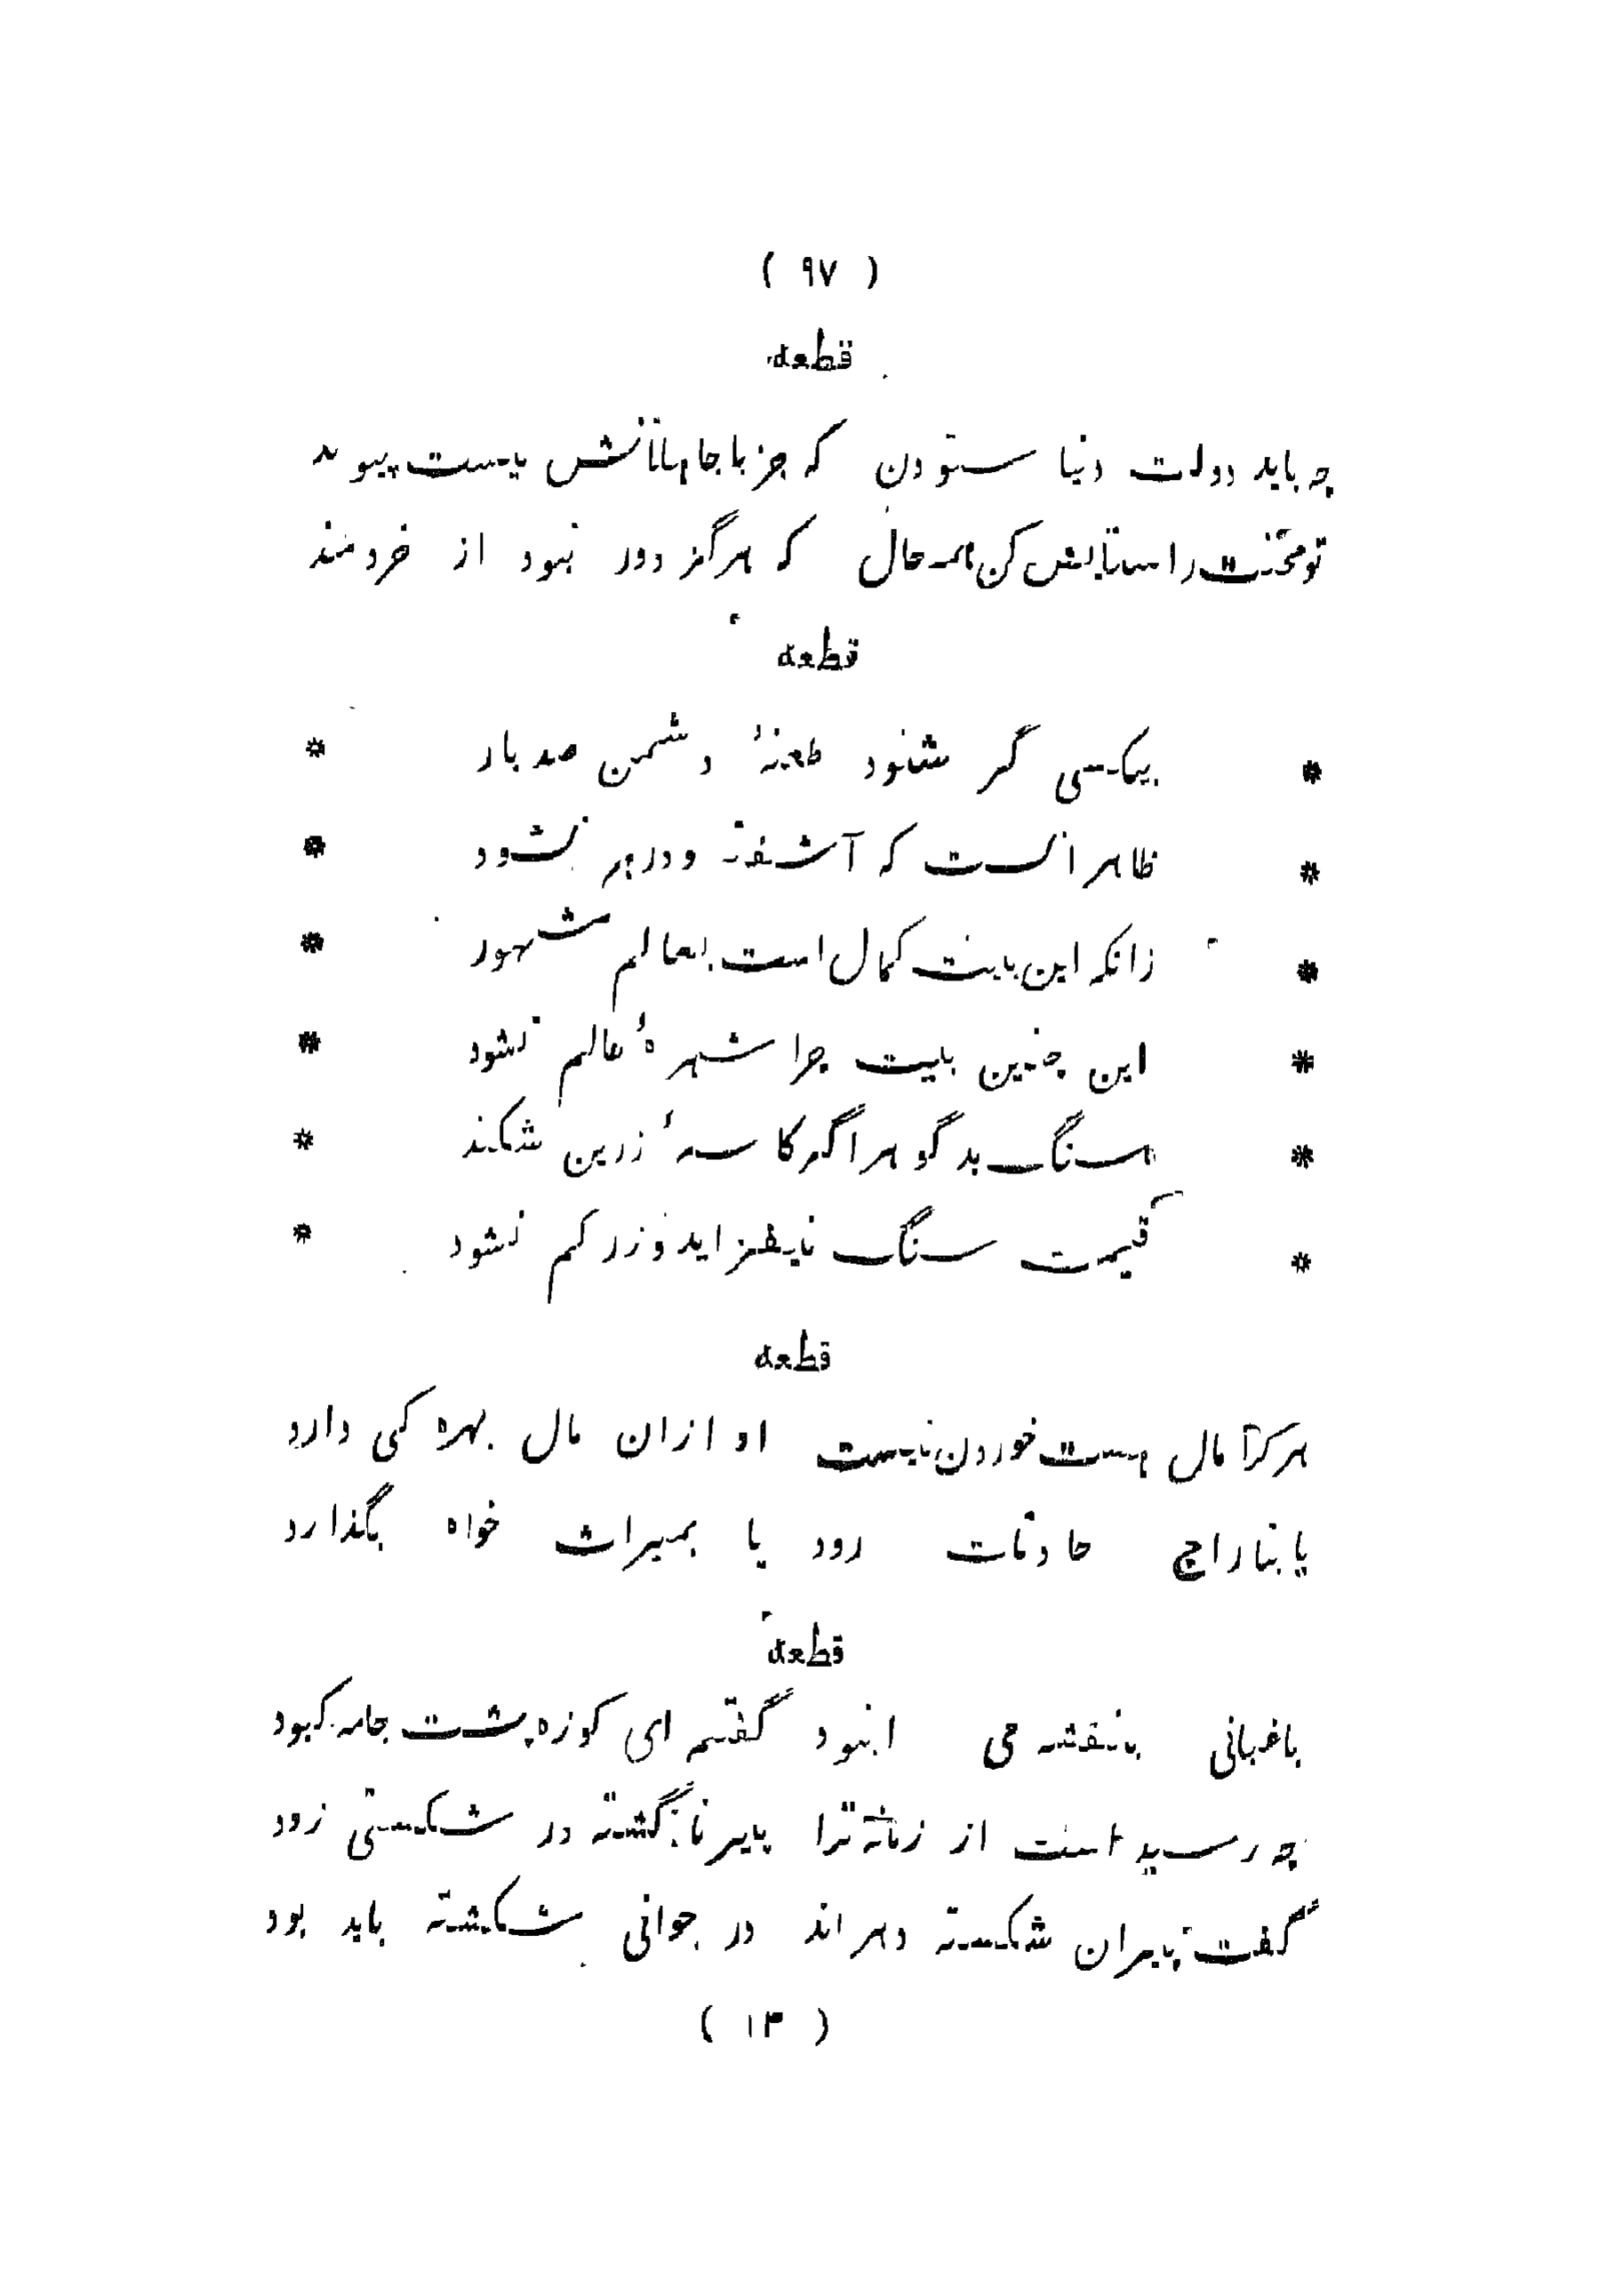 ( ٩٧ )
قطعه
چه باید دولت دنیا ستودن که جز با جاهلانش نیست پیوند
تو محنت را ستایش کن بهمه حال که هرگز دور نبود از خردمند
قطعه
* بیکسی گر شنود طعنهٔ دشمن صد بار *
* ظاهر انست که آشفته و درهم نشود *
* زانکه این بیت کمال است بعالم مشهور *
* این چنین بیت چرا شهرهٔ عالم نشود *
* سنگ بد گوهر اگر کاسهٔ زرین شکند *
* قیمت سنگ نیفزاید و زر کم نشود *
قطعه
هر کرا مال هست خوردن نیست او ازان مال بهره کی دارد
یا بتاراج حادثات رود یا بمیراث خواه بگذارد
قطعه
باغبانی بنفشه می انبود گفتم ای کوزه پشت جامه کبود
چه رسید است از زمانه ترا پیر ناگشته در شکستی زود
گفت پیران شکسته دهر اند در جوانی شکسته باید بود
( ١٣ )